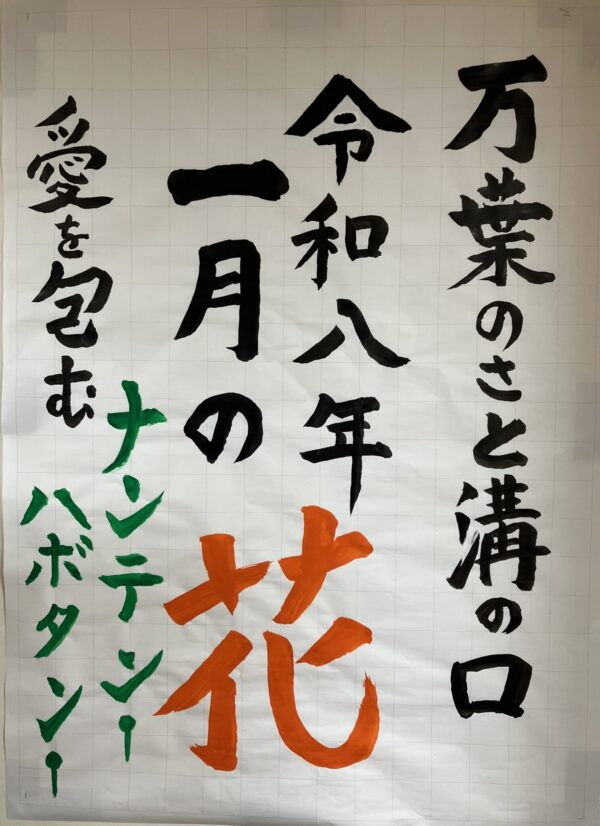 万葉のさと溝の口
令和八年
一月の花
ナンテン!
ハボタン!
愛を包む